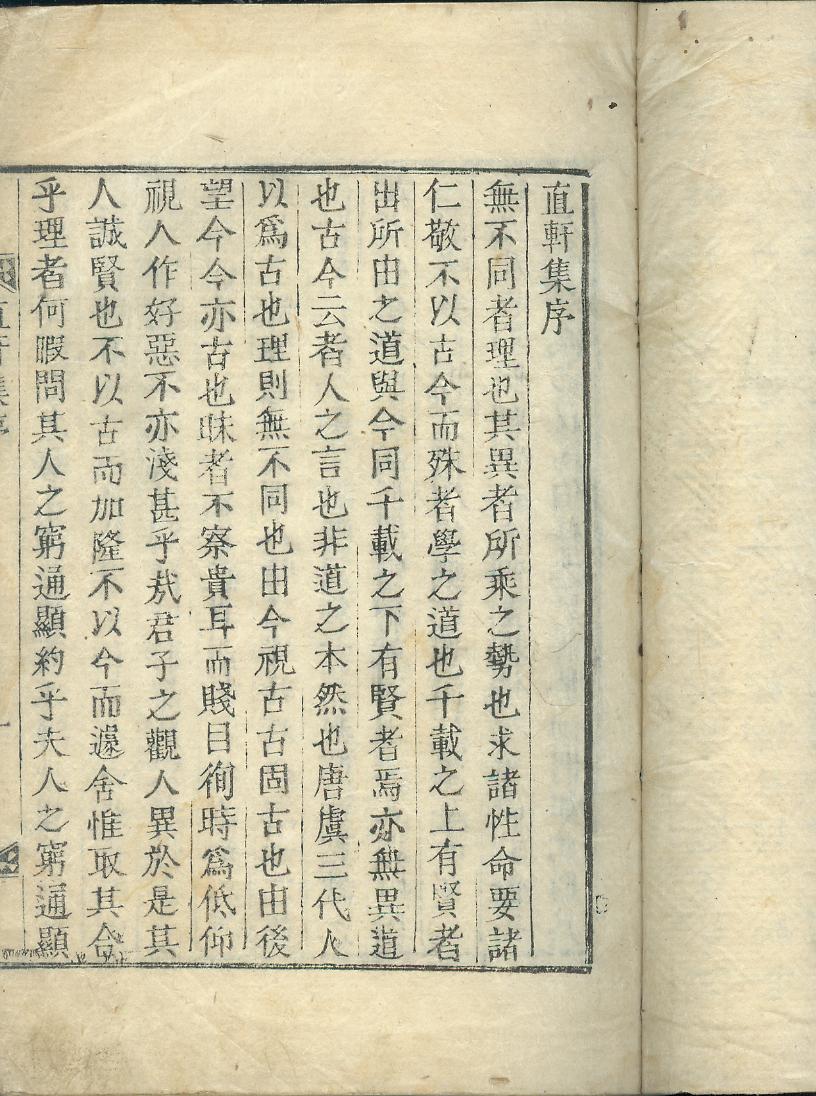 直軒集序
無不同者理也其異者所乘之勢也求諸性命要諸
仁敬不以古今而殊者學之道也千載之上有賢者
出所由之道與今同千載之下有賢者焉亦無異道
也古今云者人之言也非道之本然也唐虞三代人
以爲古也理則無不同也由今視古古固古也由後
望今今亦古也昧者不察貴耳而賤目徇時爲低仰
視人作好惡不亦淺甚乎㢤君子之觀人異於是其
人誠賢也不以古而加隆不以今而遽舍惟取其合
乎理者何暇問其人之窮通顯約乎夫人之窮通顯
直軒集序
一